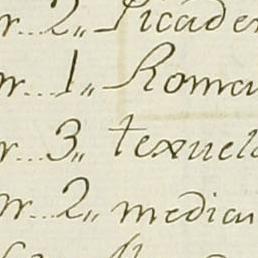 r...2,, Picade
r...1,, Roman
r...3,, texuel
r...2,, median